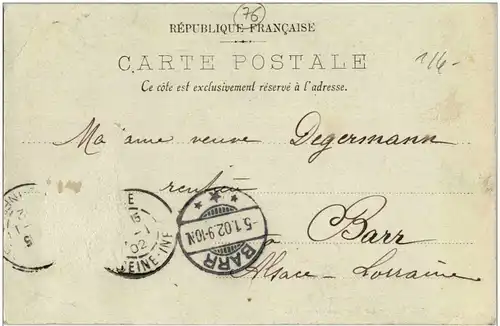 76
RÉPUBLIQUE FRANÇAISE
CARTE POSTALE
Ce côté est exclusivement réservé à l'adresse.
Ma ame veuve Degermann
rentière
à Barr
Alsace-Lorraine
-5.1.02.9-10N.
BARR
02
SEINE-INF